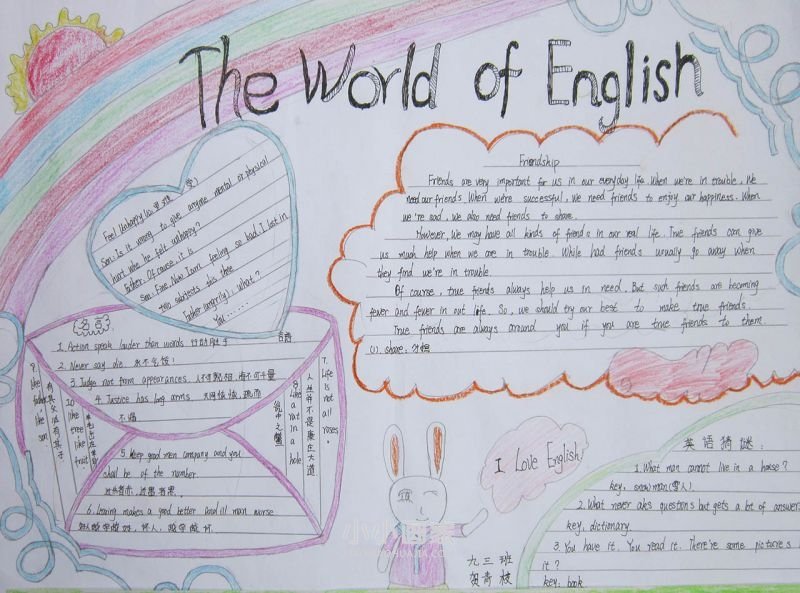 The World of English
Feel Unhappy
Son: Is it wrong to give anyone mental or physical
hurt who he felt unhappy?
Father: Of course, it is
Son: Fine Now I am feeling so bad. I lost in
two subjects this
father (angerly): What?
You ......
Friendship
Friends are very important for us in our everyday life. When we're in trouble, We
need our friends. When we're successful, We need friends to enjoy our happiness. When
we're sad, we also need friends to share.
However, We may have all kinds of friends in our real life. True friends can give
us much help when we are in trouble. While bad friends usually go away when
they find we're in trouble.
Of course, true friends always help us in need. But such friends are becoming
fever and fever in out life. So, we should try our best to make true friends.
True friends are always around you if you are true friends to them.
(1). share, 分担
名言:
1. Action speak louder than words 行动胜于言语
2. Never say die. 永不气馁!
3. Judge not from appearances. 人不可貌相,海不可斗量
4. Justice has long arms. 天网恢恢,疏而
不漏
5. Keep good men company and you
shall be of the number.
近朱者赤,近墨者黑.
6. Leaing makes a good better and ill man worse
好人越学越好,坏人越学越坏
7. Life is not all roses.
人生并不是康庄大道.
8. Like a rat in a hole
瓮中之鳖
9. like father, like son
有其父必有其子.
10. like tree, like fruit
I Love English!
九三班
英语猜谜:
1. What man cannot live in a house?
key: snowman(雪人).
2. What never asks questions but gets a lot of answers
key, dictionary.
3. You have it. You read it. There're some pictures
it?
key: book